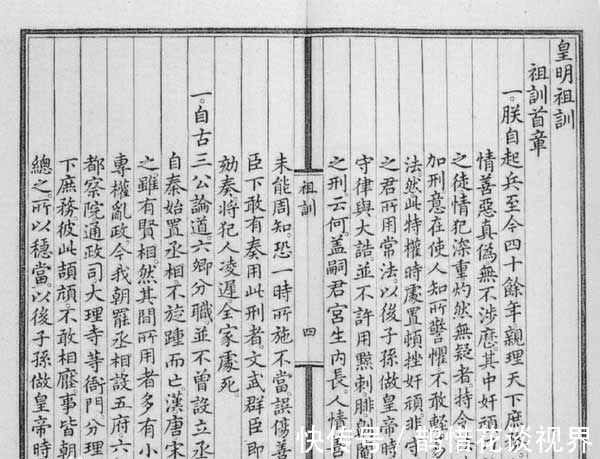 皇明祖訓
祖訓首章
一。朕自起兵至今四十餘年親理天下庶
情善惡真偽無不涉歷其中奸頑
之徒情犯深重灼然無疑者特令
加刑意在使人知所警懼不敢輕
法。然此特權時處置頓挫奸頑非守
之君所用常法。以後子孫做皇帝
守律與大誥並不許用黥刺腓劓
之刑云何。蓋嗣君宮生內長。人情
祖訓
四
未能周知。恐一時所施不當。誤傷善
臣下敢有奏用此刑者。文武群臣即
劾奏將犯人凌遲全家處死。
一。自古三公論道六卿分職並不曾設立丞
自秦始置丞相不旋踵而亡。漢唐宋
之雖有賢相然其間所用者多有小
專權亂政。今我朝罷丞相設五府六
都察院通政司。大理寺等衙門。分理
下庶務。彼此頡頏。不敢相壓事皆朝
總之。所以穩當。以後子孫做皇帝時
快传号 / 鹊惜花谈视界